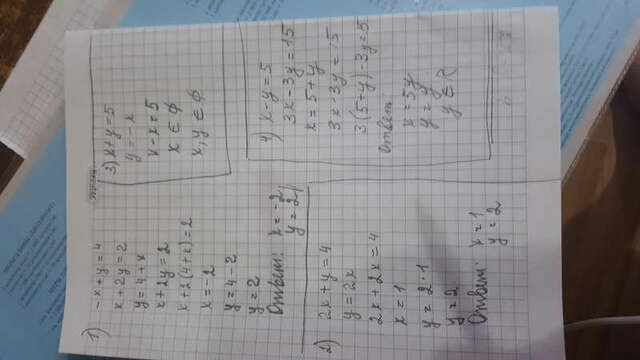 1) -x+y=4
x+2y=2
y=4+x
x+2y=2
x+2(4+x)=2
x=-2
y=4-2
y=2
Ответ: x=-2
y=2
2) 2x+y=4
y=2x
2x+2x=4
x=1
y=2·1
y=2
Ответ: x=1
y=2
3) x+y=5
y=-x
x-x=5
x∈ϕ
x,y∈ϕ
4) x-y=5
3x-3y=15
x=5+y
3x-3y=15
3(5+y)-3y=5
Ответ:
x=5y
y=y
y∈R